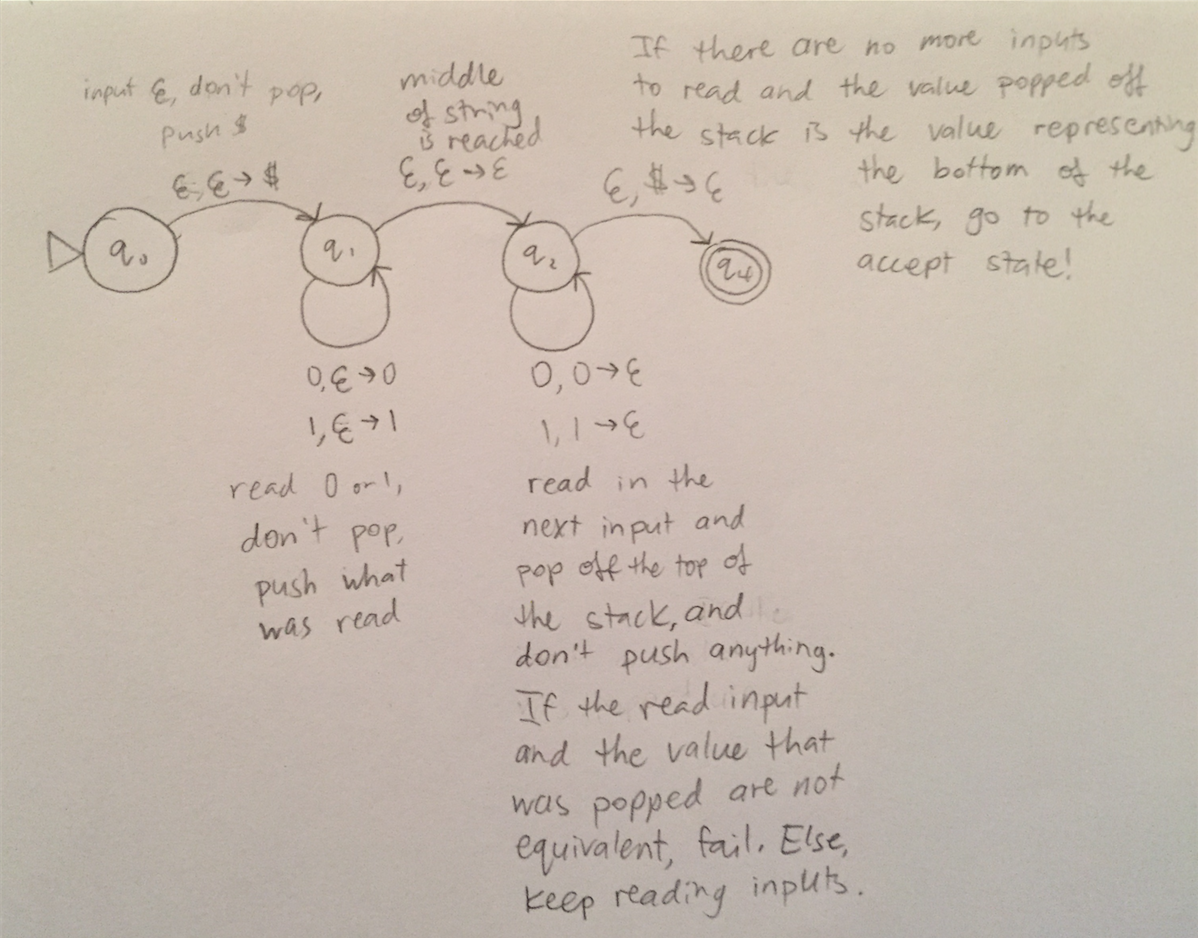 input ε, don't pop,
push $
ε, ε → $
middle
of string
is reached
ε, ε → ε
If there are no more inputs
to read and the value popped off
the stack is the value representing
the bottom of the
stack, go to the
accept state!
ε, $ → ε
q₀
q₁
q₂
q₄
0, ε → 0
1, ε → 1
read 0 or 1,
don't pop,
push what
was read
0, 0 → ε
1, 1 → ε
read in the
next input and
pop off the top of
the stack, and
don't push anything.
If the read input
and the value that
was popped are not
equivalent, fail. Else,
keep reading inputs.